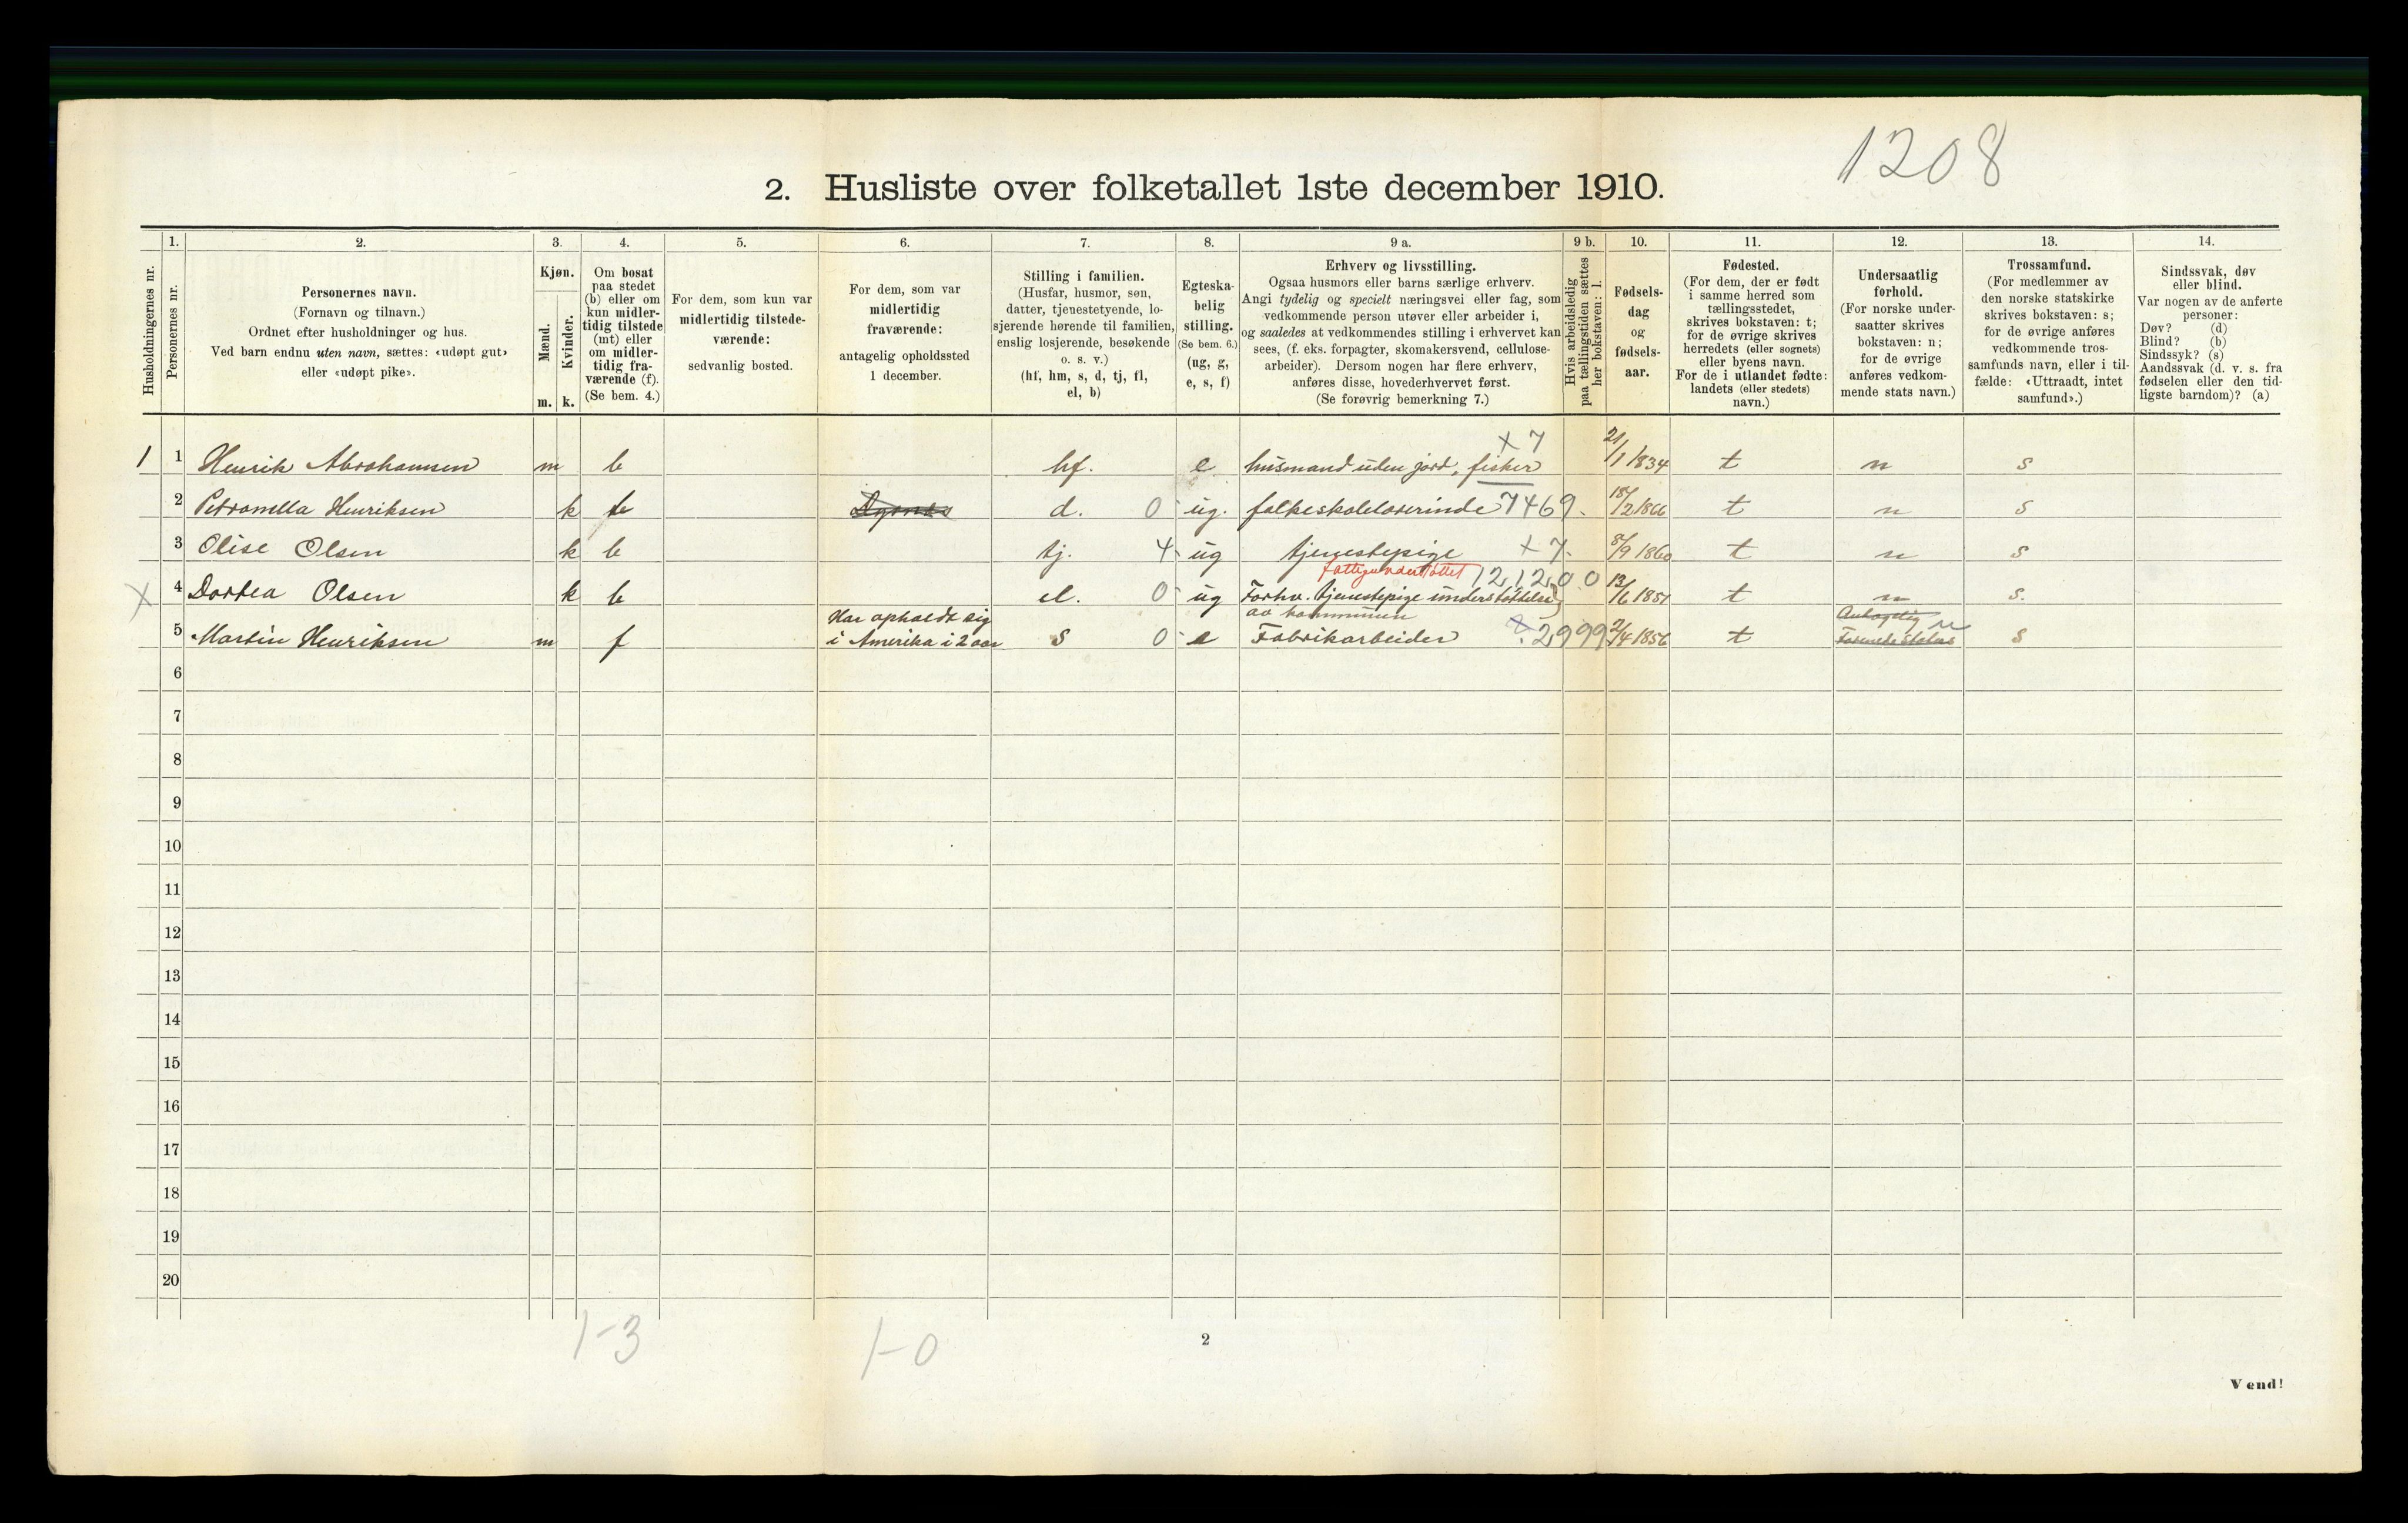 1208
2. Husliste over folketallet 1ste december 1910.
Husholdningernes nr.
1.
Personernes nr.
2.
Personernes navn.
(Fornavn og tilnavn.)
Ordnet efter husholdninger og hus.
Ved barn endnu uten navn, sættes: «udøpt gut»
eller «udøpt pike».
3.
Kjøn.
Mænd.
Kvinder.
m. k.
4.
Om bosat
paa stedet
(b) eller om
kun midler-
tidig tilstede
(mt) eller
om midler-
tidig fra-
værende (f).
(Se bem. 4.)
5.
For dem, som kun var
midlertidig tilstede-
værende:
sedvanlig bosted.
6.
For dem, som var
midlertidig
fraværende:
antagelig opholdssted
1 december.
7.
Stilling i familien.
(Husfar, husmor, søn,
datter, tjenestetyende, lo-
sjerende hørende til familien,
enslig losjerende, besøkende
o. s. v.)
(hf, hm, s, d, tj, fl,
el, b)
8.
Egteska-
belig
stilling.
(Se bem. 6.)
(ug, g,
e, s, f)
9 a.
Erhverv og livsstilling.
Ogsaa husmors eller barns særlige erhverv.
Angi tydelig og specielt næringsvei eller fag, som
vedkommende person utøver eller arbeider i,
og saaledes at vedkommendes stilling i erhvervet kan
sees, (f. eks. forpagter, skomakersvend, cellulose-
arbeider). Dersom nogen har flere erhverv,
anføres disse, hovederhvervet først.
(Se forøvrig bemerkning 7.)
9 b.
Hvis arbeidsledig
paa tællingstiden sættes
her bokstaven: l.
10.
Fødsels-
dag
og
fødsels-
aar.
11.
Fødested.
(For dem, der er født
i samme herred som
tællingsstedet,
skrives bokstaven: t;
for de øvrige skrives
herredets (eller sognets)
eller byens navn.
For de i utlandet fødte:
landets (eller stedets)
navn.)
12.
Undersaatlig
forhold.
(For norske under-
saatter skrives
bokstaven: n;
for de øvrige
anføres vedkom-
mende stats navn.)
13.
Trossamfund.
(For medlemmer av
den norske statskirke
skrives bokstaven: s;
for de øvrige anføres
vedkommende tros-
samfunds navn, eller i til-
fælde: «Uttraadt, intet
samfund».)
14.
Sindssvak, døv
eller blind.
Var nogen av de anførte
personer:
Døv? (d)
Blind? (b)
Sindssyk? (s)
Aandssvak (d. v. s. fra
fødselen eller den tid-
ligste barndom)? (a)
x 7
1 1 Henrik Abrahamsen m b hf. e husmand uden jord, fisker 21/1 1834 t n s
2 Petronella Henriksen k b d. 0 ug. folkeskolelærerinde 7469. 18/2 1866 t n s
3 Olise Olsen k b tj. 4 ug tjenestepige x 7. 8/9 1860 t n s
fattigunderstøttet 12,12,00
X 4 Dortea Olsen k b el. 0 ug Forhv. tjenestepige understøttelse 13/6 1851 t n s.
av kommunen
Har opholdt sig
5 Martin Henriksen m f i Amerika i 2 aar s 0 e Fabrikarbeider 2999 2/4 1856 t Antagelig n Forenede Stater s
6
7
8
9
10
11
12
13
14
15
16
17
18
19
20
1-3 1-0
2
Vend!